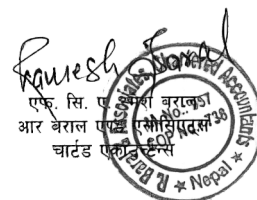 Ramesh Baral
एफ. सि. ए. रमेश बराल
आर बराल एण्ड एसोसिएट्स
चार्टड एकाउन्टेन्ट्स
R. Baral & Associates, Chartered Accountants
* Nepal *